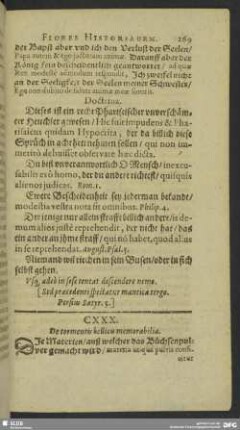 FLORES HISTORIARUM. 269
der Bapst aber und ich den Verlust der Seelen/
Papa autem & Ego jacturam animæ. Darauff aber der
König sein bescheidentlich geantwortet/ ad quæ
Rex modestè respondit, Ich zweifel nicht
an der Seeligkeit der Seelen meiner Schwester/
Ego non dubito de salute animæ meæ sororis.
Doctrina.
Dieses ist ein recht Phariseischer unverschäm-
ter Heuchler gewesen/ Hic fuit impudens & Pha-
risaicus quidam Hypocrita, der da billich diese
Sprüch in acht hett nehmen sollen/ qui non im-
meritò debuisset observare hæc dicta.
Du bist unverantwortlich O Mensch/ inexcu-
sabilis es ò homo, der du andere richtest/ qui quis
alienos judicas. Rom. 1.
Ewere Bescheidenheit sey jederman bekandt/
modestia vestra nota sit omnibus. Philip. 4.
Derjenige nur allein strafft billich andere/ is de-
mum alios justè reprehendit, der nicht hat/ das
ein ander an ihme straff/ qui nõ habet, quod alius
in se reprehendat. August. Psal. 5.
Niemand wil in den in sein Busen/ oder in sich
selbst gehen.
Usq; adeò in sese tentat descendere nemo.
[Sed præcedenti spectatur mantica tergo.
Persius Satyr. 5.]
CXXX.
De tormento bellico memorabilia.
Die Materien/ auß welcher das Büchsenpul-
ver gemacht wird/ materia ex qua pulvis